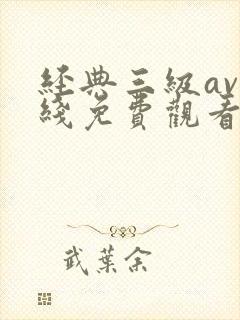 經典三級av
綫免費觀看
武葉余